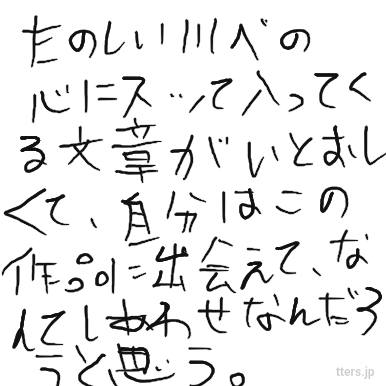 たのしい川べの
心にスッて入ってく
る文章がいとおし
くて、自分はこの
作品に出会えて、な
んてしあわせなんだろ
うと思う。
tters.jp